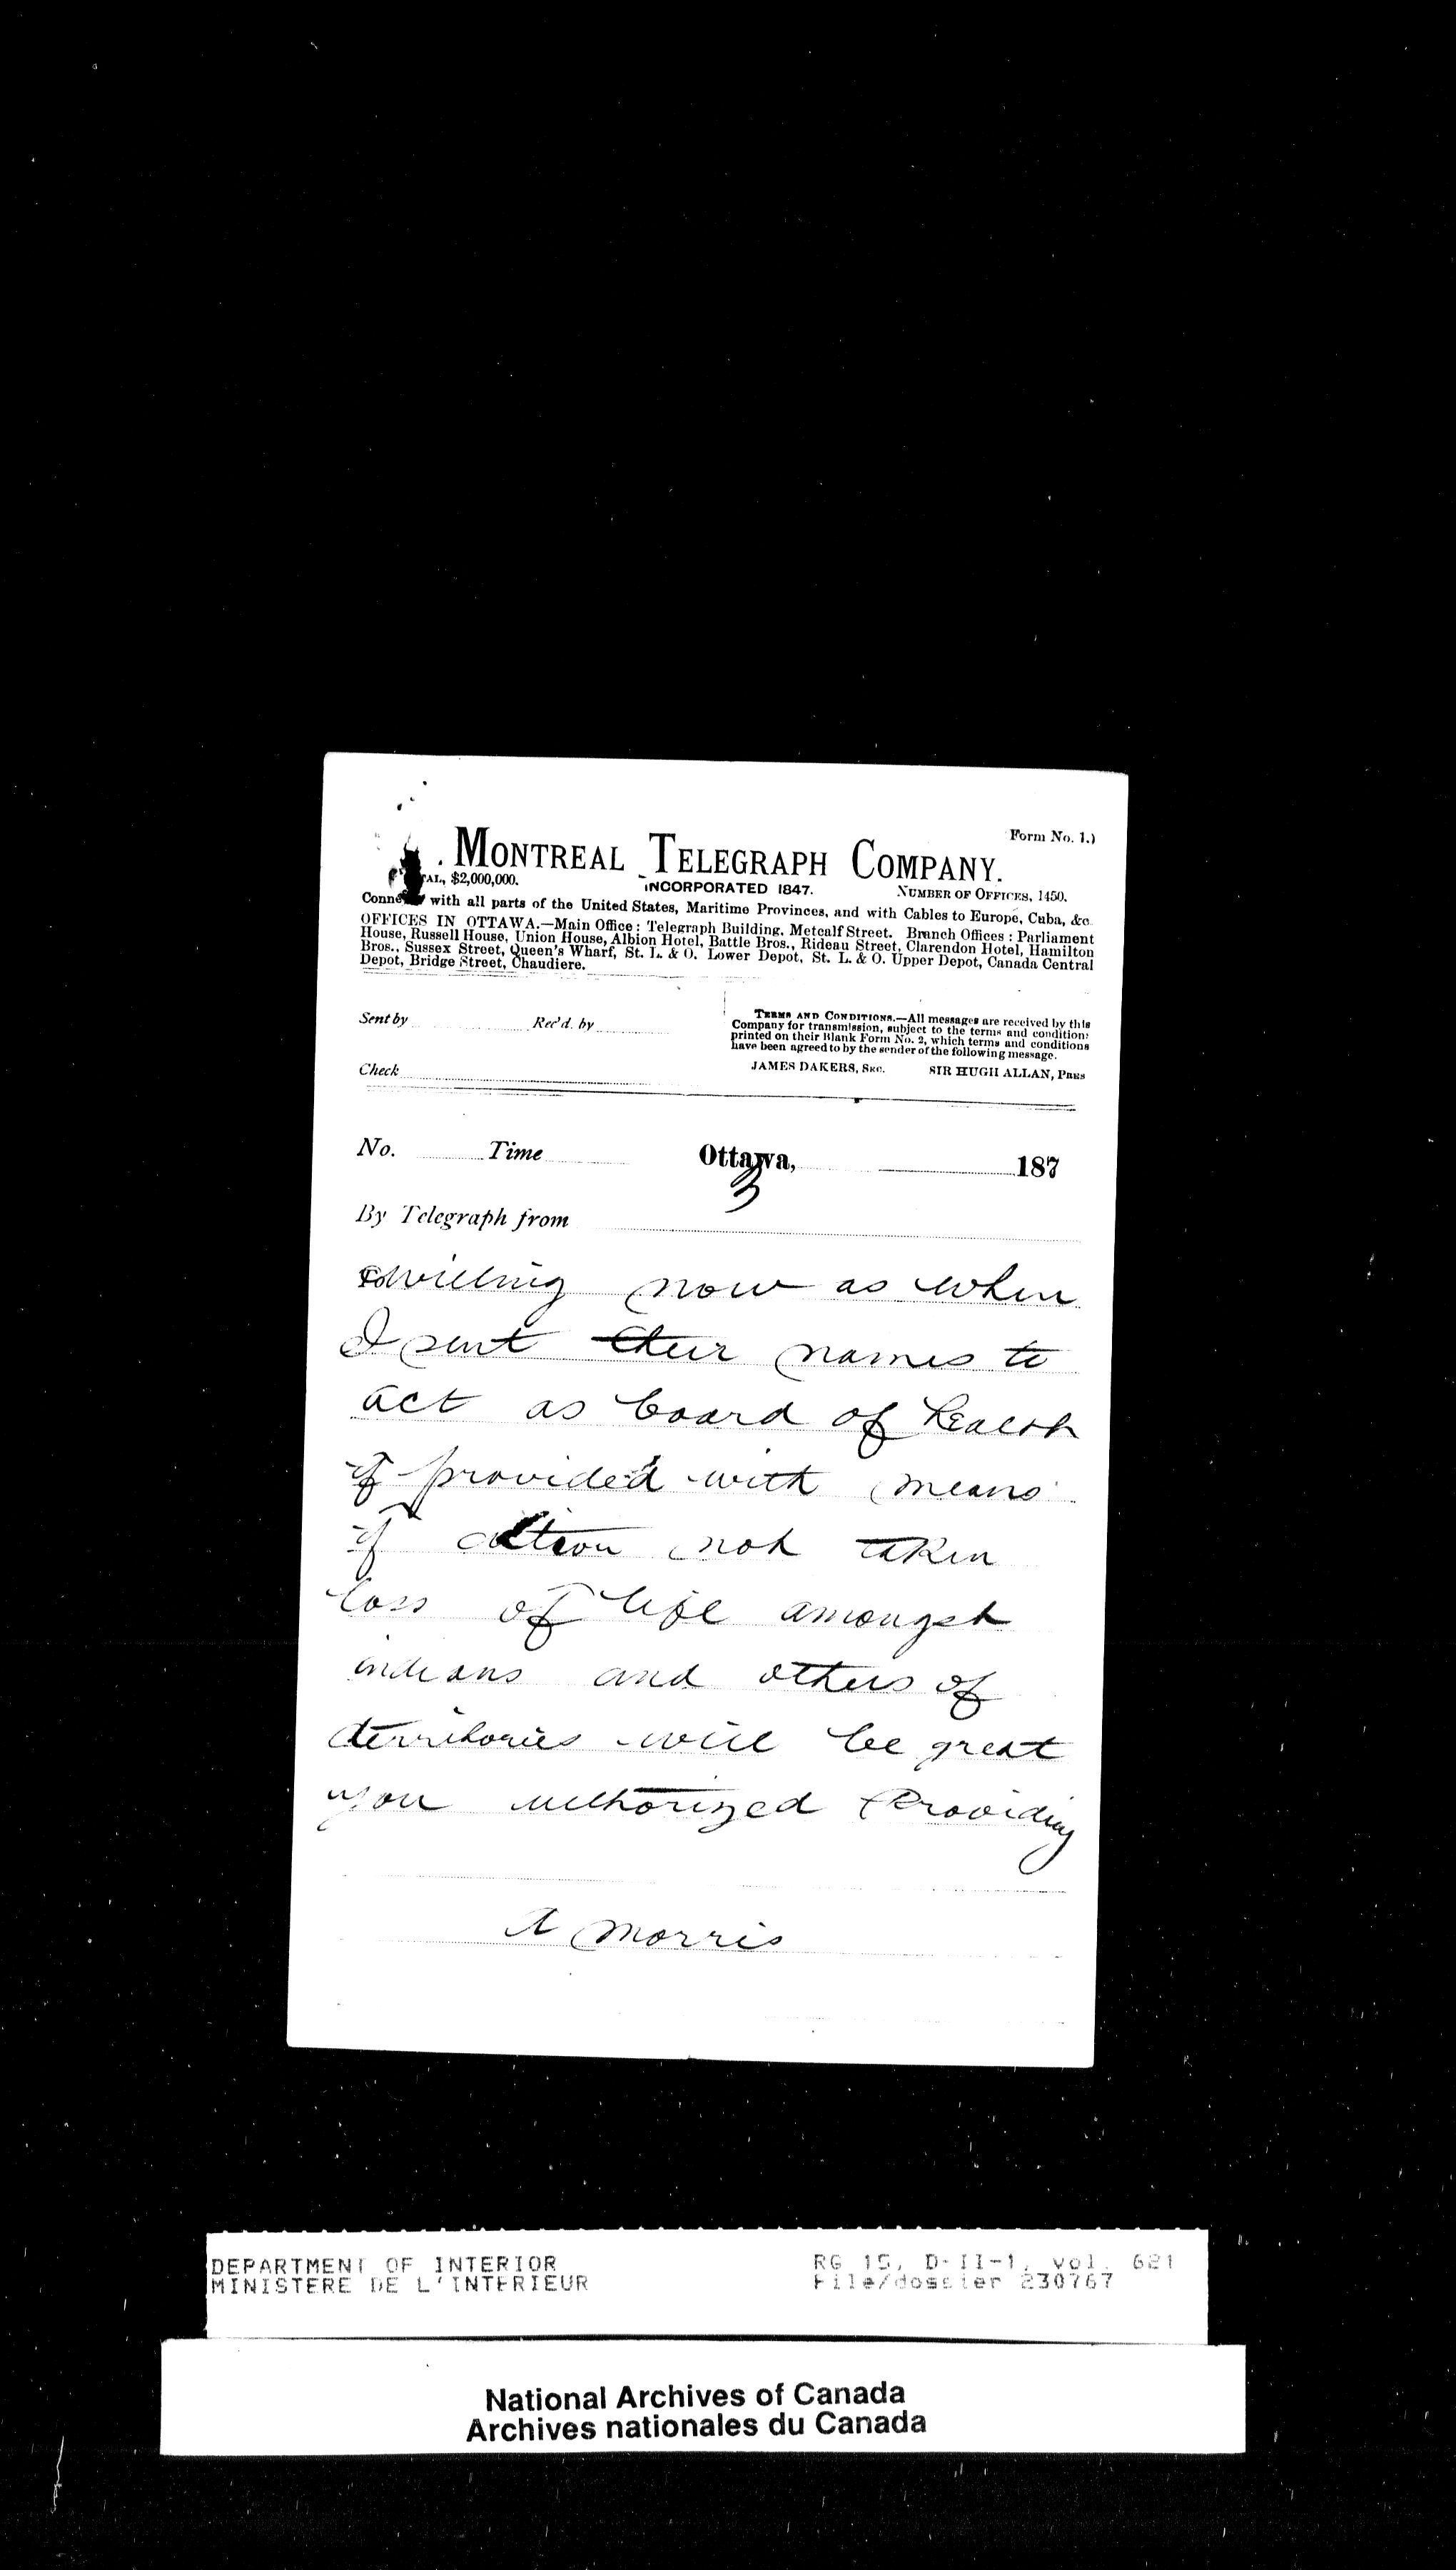 Form No. 1.)
MONTREAL TELEGRAPH COMPANY.
AL, $2,000,000. INCORPORATED 1847. NUMBER OF OFFICES, 1450.
Conne with all parts of the United States, Maritime Provinces, and with Cables to Europe, Cuba, &c.
OFFICES IN OTTAWA.—Main Office: Telegraph Building, Metcalf Street. Branch Offices: Parliament
House, Russell House, Union House, Albion Hotel, Battle Bros., Rideau Street, Clarendon Hotel, Hamilton
Bros., Sussex Street, Queen's Wharf, St. L. & O. Lower Depot, St. L. & O. Upper Depot, Canada Central
Depot, Bridge Street, Chaudiere.
Sent by Rec'd. by
Check
TERMS AND CONDITIONS.—All messages are received by this
Company for transmission, subject to the terms and conditions
printed on their Blank Form No. 2, which terms and conditions
have been agreed to by the sender of the following message.
JAMES DAKERS, SEC. SIR HUGH ALLAN, PRES
No. Time Ottawa, 187
3
By Telegraph from
To willing now as when
I sent their names to
act as board of health
if provided with means
if action not taken
loss of life amongst
indians and others of
territories will be great
you authorized Providing
A Morris
DEPARTMENT OF INTERIOR
MINISTERE DE L'INTERIEUR
RG 15, D-II-1, vol. 621
File/dossier 230767
National Archives of Canada
Archives nationales du Canada